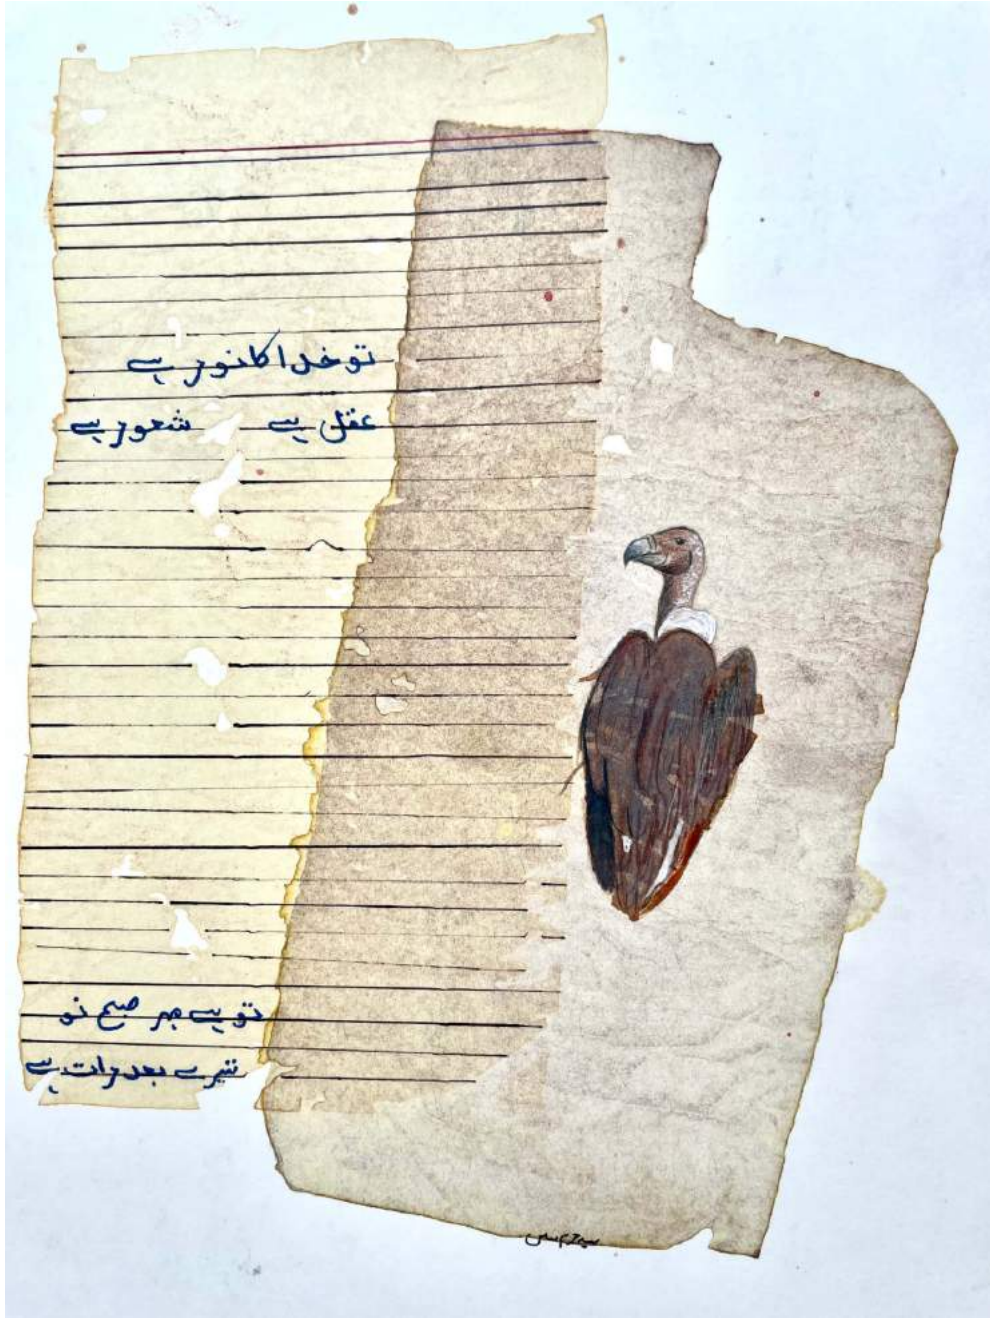 تو خدا کا نور ہے
عقل ہے شعور ہے
تو ہے مہر صبح نو
تیرے بعد رات ہے